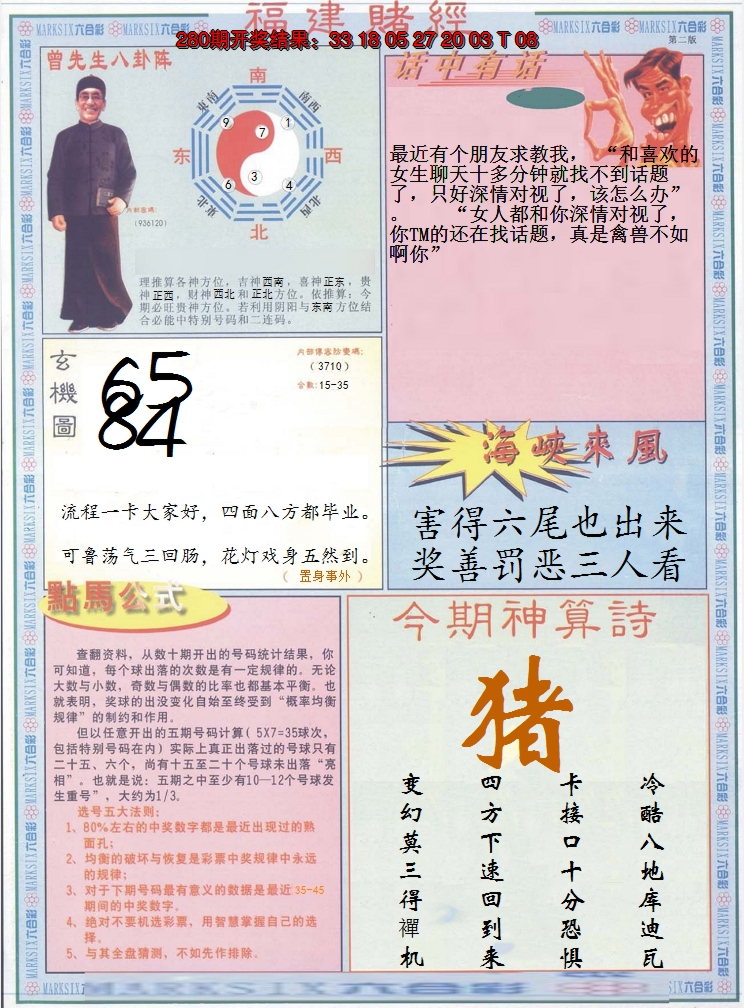 福建賭經
280期开奖结果：33 18 05 27 20 03 T 08
MARKSIX六合彩
第二版
曾先生八卦阵
南
东南
南西
9
7
1
东
西
6
3
4
東北
北西
北
内部密碼:
(936120)
理推算各神方位，吉神西南，喜神正东，贵
神正西，财神西北和正北方位。依推算：今
期必旺贵神方位。若利用阴阳与东南方位结
合必能中特别号码和二连码。
话中有话
最近有个朋友求教我， “和喜欢的
女生聊天十多分钟就找不到话题
了，只好深情对视了，该怎么办”
。 “女人都和你深情对视了，
你TM的还在找话题，真是禽兽不如
啊你”
玄機圖
65
84
(3710)
合数:15-35
流程一卡大家好，四面八方都毕业。
可鲁荡气三回肠，花灯戏身五然到。
（ 置身事外 ）
海峡來風
害得六尾也出来
奖善罚恶三人看
點馬公式
查翻资料，从数十期开出的号码统计结果，你
可知道，每个球出落的次数是有一定规律的。无论
大数与小数，奇数与偶数的比率也都基本平衡。也
就表明，奖球的出没变化自始至终受到“概率均衡
规律”的制约和作用。
但以任意开出的五期号码计算( 5X7=35球次，
包括特别号码在内）实际上真正出落过的号球只有
二十五、六个，尚有十五至二十个号球未出落“亮
相”。也就是说：五期之中至少有10—12个号球发
生重号”，大约为1/3。
选号五大法则：
1、80%左右的中奖数字都是最近出现过的熟
面孔；
2、均衡的破坏与恢复是彩票中奖规律中永远
的规律；
3、对于下期号码最有意义的数据是最近35-45
期间的中奖数字。
4、绝对不要机选彩票，用智慧掌握自己的选
择。
5、与其全盘猜测，不如先作排除。
今期神算詩
猪
冷酷八地库迪瓦
卡接口十分恐惧
四方下速回到来
变幻莫三得禪机